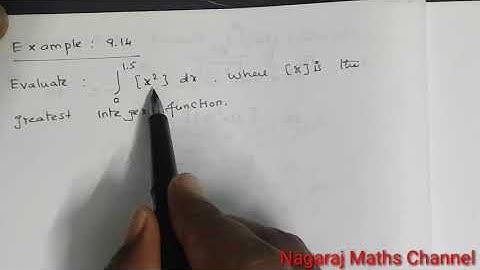 Example: 9.14
Evaluate : ∫₀^1.5 [x²] dx . where [x] is the
greatest integer function.
Nagaraj Maths Channel